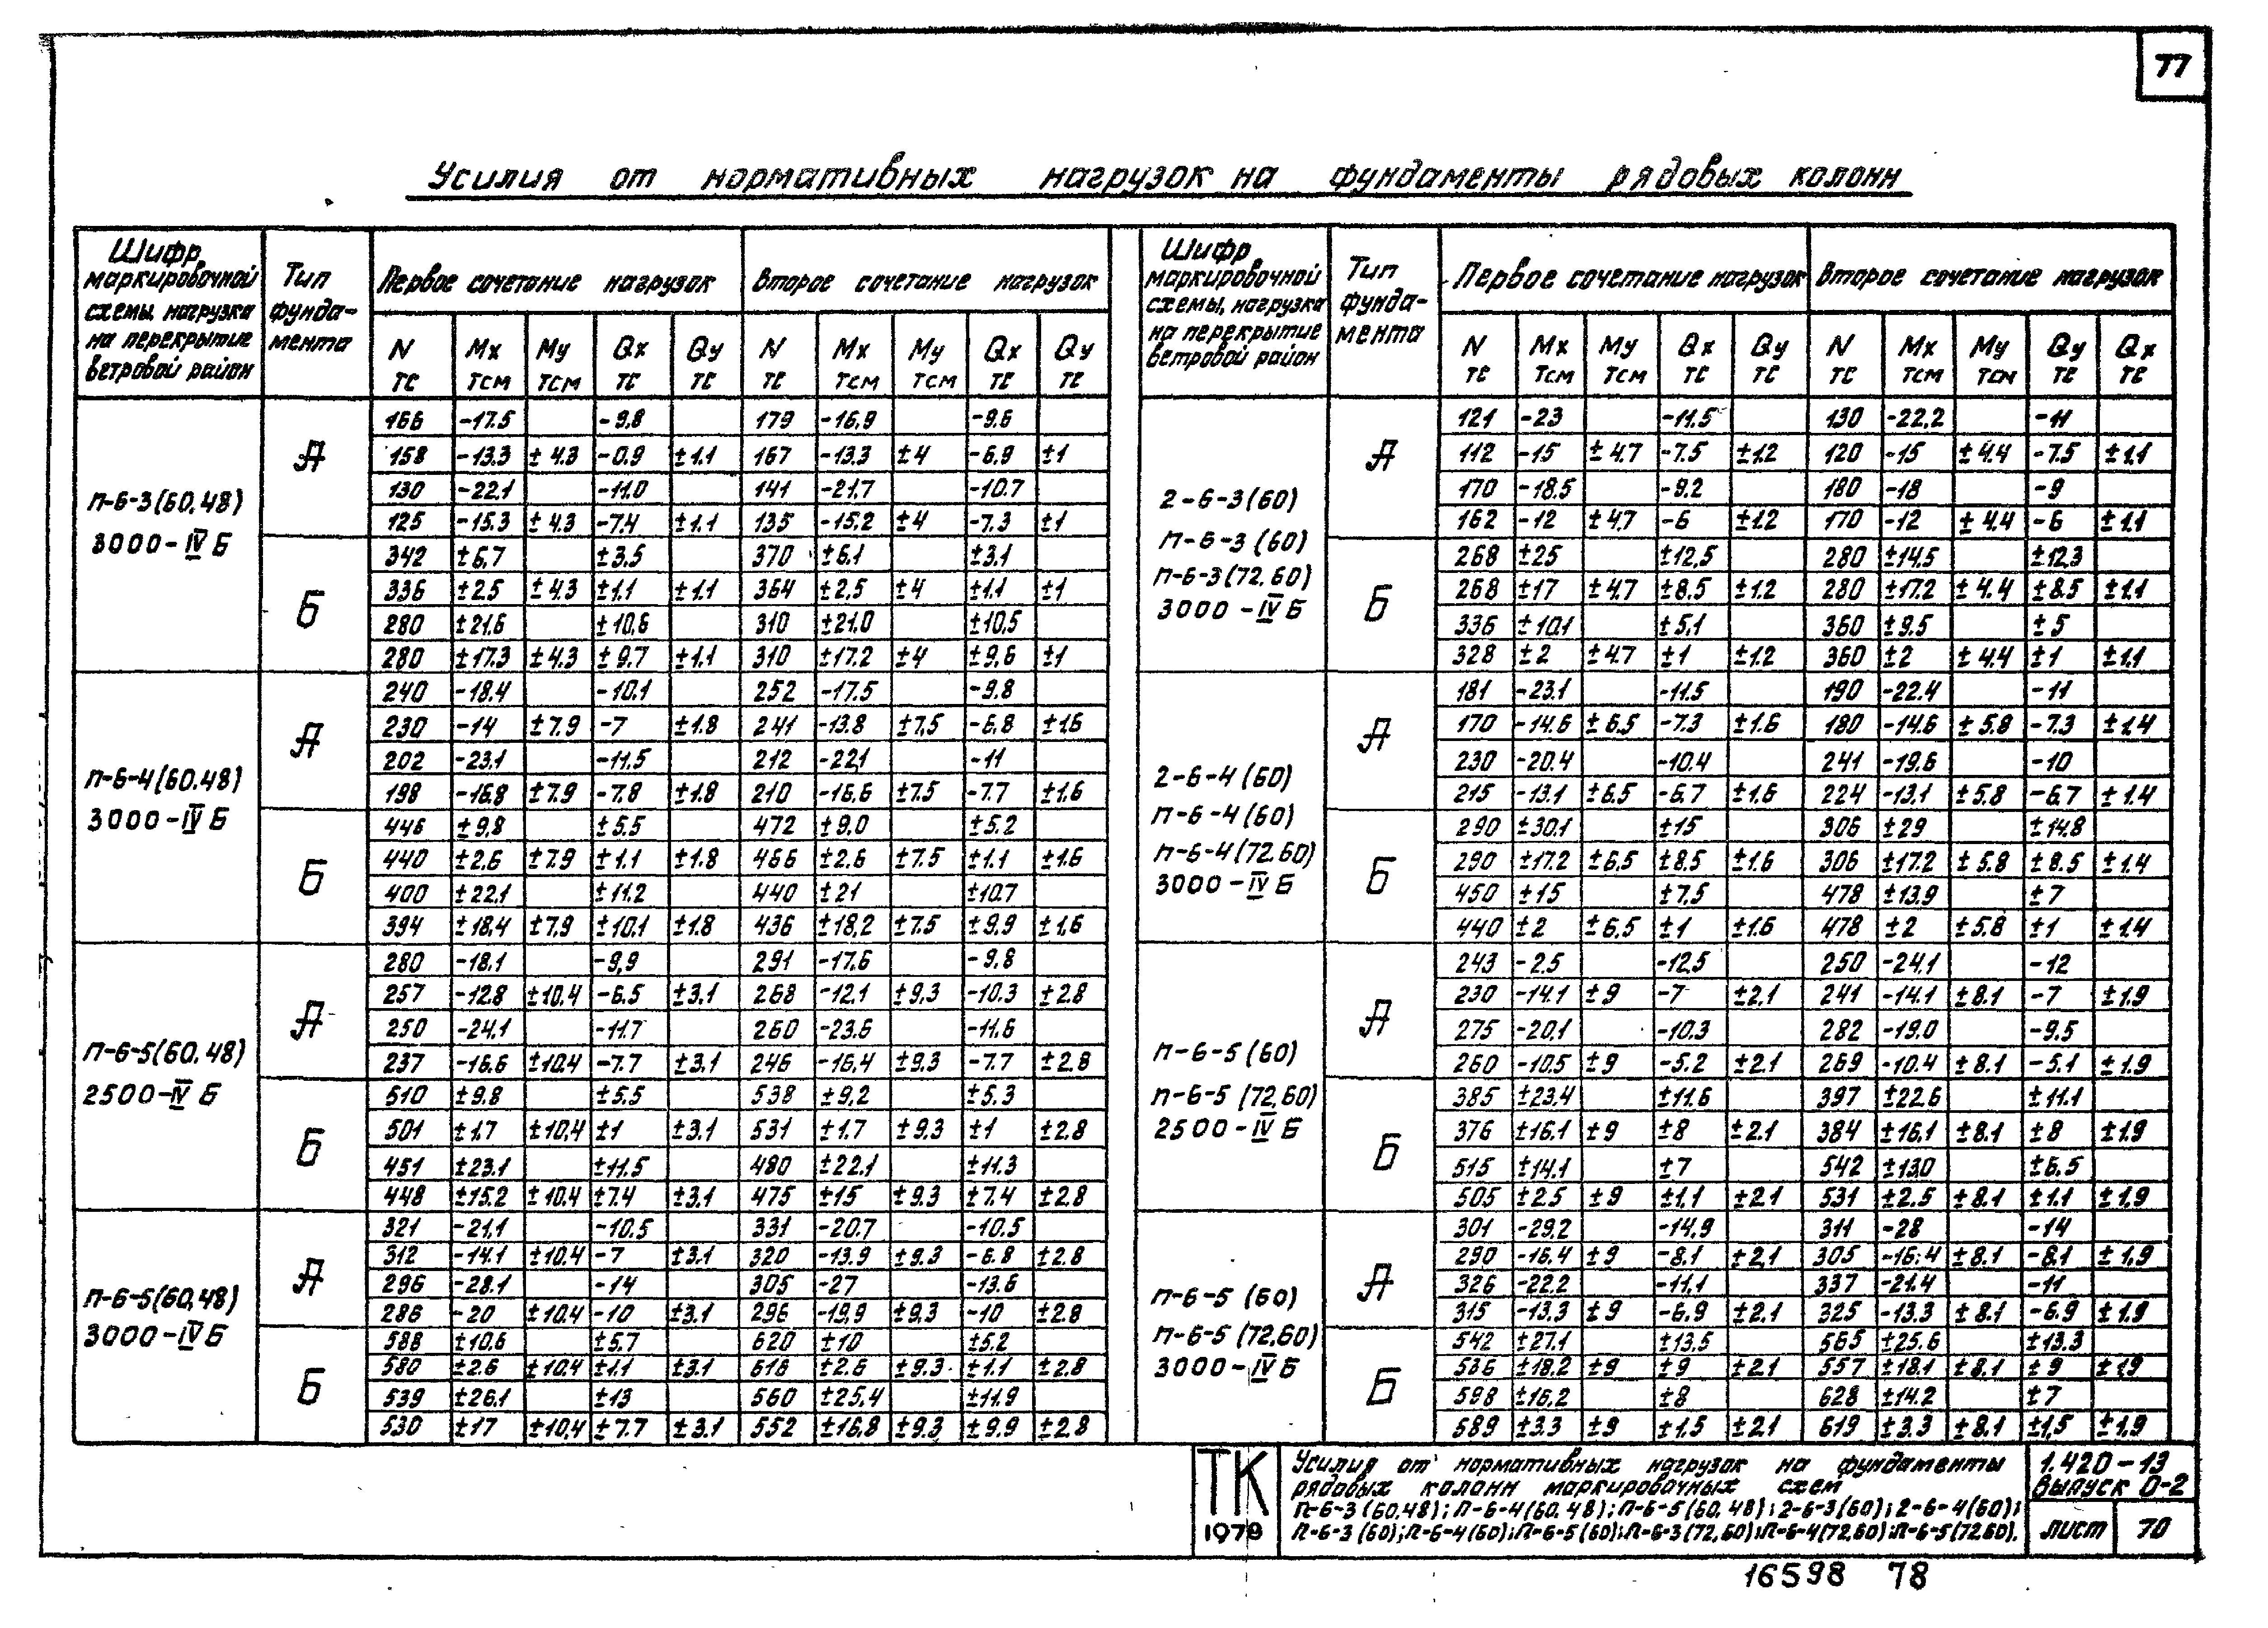 77
Усилия от нормативных нагрузок на фундаменты рядовых колонн
Шифр маркировочной схемы, нагрузка на перекрытие ветровой район | Тип фунда-мента | Первое сочетание нагрузок | Второе сочетание нагрузок
N тс | Mx тсм | My тсм | Qx тс | Qy тс | N тс | Mx тсм | My тсм | Qx тс | Qy тс
п-6-3(60,48)
3000-IV Б
А
166 -17.5 -9,8 179 -16,9 -9.6
158 -13.3 ±4.3 -0.9 ±1.1 167 -13.3 ±4 -6,9 ±1
130 -22.1 -11.0 141 -21,7 -10.7
125 -15.3 ±4.3 -7.4 ±1.1 135 -15.2 ±4 -7.3 ±1
Б
342 ±6,7 ±3,5 370 ±6.1 ±3.1
336 ±2.5 ±4.3 ±1.1 ±1.1 364 ±2,5 ±4 ±1.1 ±1
280 ±21.6 ±10,6 310 ±21.0 ±10,5
280 ±17.3 ±4.3 ±9.7 ±1.1 310 ±17.2 ±4 ±9,6 ±1
п-6-4(60.48)
3000-IV Б
А
240 -18.4 -10.1 252 -17.5 -9.8
230 -14 ±7.9 -7 ±1.8 241 -13.8 ±7,5 -6,8 ±1.6
202 -23.1 -11.5 212 -22,1 -11
198 -16.8 ±7.9 -7.8 ±1.8 210 -16.6 ±7.5 -7.7 ±1.6
Б
446 ±9,8 ±5.5 472 ±9,0 ±5.2
440 ±2.6 ±7.9 ±1.1 ±1.8 466 ±2.6 ±7.5 ±1.1 ±1.6
400 ±22.1 ±11.2 440 ±21 ±10.7
394 ±18,4 ±7,9 ±10,1 ±1.8 436 ±18,2 ±7.5 ±9.9 ±1.6
п-6-5(60.48)
2500-IV Б
А
280 -18.1 -9,9 291 -17.6 -9.8
257 -12.8 ±10,4 -6.5 ±3,1 268 -12,1 ±9,3 -10.3 ±2.8
250 -24,1 -11.7 260 -23.6 -11.6
237 -16.6 ±10.4 -7.7 ±3,1 246 -16,4 ±9.3 -7.7 ±2.8
Б
510 ±9.8 ±5,5 538 ±9,2 ±5.3
501 ±1.7 ±10,4 ±1 ±3.1 531 ±1.7 ±9.3 ±1 ±2.8
451 ±23.1 ±11.5 480 ±22.1 ±11.3
448 ±15.2 ±10.4 ±7.4 ±3.1 475 ±15 ±9.3 ±7.4 ±2.8
п-6-5(60,48)
3000-IV Б
А
321 -21,1 -10.5 331 -20.7 -10.5
312 -14.1 ±10.4 -7 ±3.1 320 -13.9 ±9.3 -6.8 ±2.8
296 -28.1 -14 305 -27 -13.6
286 -20 ±10.4 -10 ±3.1 296 -19,9 ±9,3 -10 ±2.8
Б
588 ±10.6 ±5.7 620 ±10 ±5.2
580 ±2.6 ±10,4 ±1.1 ±3.1 618 ±2.6 ±9.3 ±1.1 ±2.8
539 ±26.1 ±13 560 ±25,4 ±11.9
530 ±17 ±10,4 ±7.7 ±3.1 552 ±16,8 ±9.3 ±9.9 ±2.8
Шифр маркировочной схемы, нагрузка на перекрытие ветровой район | Тип фунда-мента | Первое сочетание нагрузок | Второе сочетание нагрузок
N тс | Mx тсм | My тсм | Qx тс | Qy тс | N тс | Mx тсм | My тсм | Qy тс | Qx тс
2-6-3(60)
п-6-3(60)
п-6-3(72,60)
3000-IV Б
А
121 -23 -11.5 130 -22,2 -11
112 -15 ±4.7 -7.5 ±1.2 120 -15 ±4.4 -7.5 ±1,1
170 -18.5 -9.2 180 -18 -9
162 -12 ±4,7 -6 ±1.2 170 -12 ±4.4 -6 ±1.1
Б
268 ±25 ±12,5 280 ±14,5 ±12,3
268 ±17 ±4.7 ±8,5 ±1.2 280 ±17.2 ±4.4 ±8.5 ±1.1
336 ±10.1 ±5,1 360 ±9.5 ±5
328 ±2 ±4.7 ±1 ±1.2 360 ±2 ±4.4 ±1 ±1.1
2-6-4(60)
п-6-4(60)
п-6-4(72.60)
3000-IV Б
А
181 -23.1 -11.5 190 -22.4 -11
170 -14.6 ±6.5 -7.3 ±1.6 180 -14.6 ±5.8 -7.3 ±1.4
230 -20.4 -10.4 241 -19.6 -10
215 -13.1 ±6.5 -6,7 ±1.6 224 -13.1 ±5.8 -6.7 ±1.4
Б
290 ±30.1 ±15 306 ±29 ±14.8
290 ±17.2 ±6,5 ±8.5 ±1.6 306 ±17.2 ±5.8 ±8.5 ±1.4
450 ±15 ±7,5 478 ±13.9 ±7
440 ±2 ±6,5 ±1 ±1.6 478 ±2 ±5.8 ±1 ±1.4
п-6-5(60)
п-6-5(72,60)
2500-IV Б
А
243 -2.5 -12,5 250 -24.1 -12
230 -14.1 ±9 -7 ±2,1 241 -14.1 ±8.1 -7 ±1.9
275 -20,1 -10.3 282 -19.0 -9.5
260 -10.5 ±9 -5.2 ±2.1 269 -10.4 ±8.1 -5.1 ±1.9
Б
385 ±23.4 ±11.6 397 ±22.6 ±11.1
376 ±16.1 ±9 ±8 ±2.1 384 ±16,1 ±8.1 ±8 ±1.9
515 ±14.1 ±7 542 ±13.0 ±6,5
505 ±2.5 ±9 ±1,1 ±2.1 531 ±2.5 ±8.1 ±1.1 ±1,9
п-6-5(60)
п-6-5(72,60)
3000-IV Б
А
301 -29,2 -14,9 311 -28 -14
290 -16,4 ±9 -8.1 ±2,1 305 -16.4 ±8.1 -8.1 ±1,9
326 -22.2 -11,1 337 -21.4 -11
315 -13.3 ±9 -6,9 ±2,1 325 -13.3 ±8.1 -6.9 ±1.9
Б
542 ±27.1 ±13,5 565 ±25.6 ±13.3
536 ±18,2 ±9 ±9 ±2.1 557 ±18.1 ±8.1 ±9 ±1,9
598 ±16,2 ±8 628 ±14.2 ±7
589 ±3.3 ±9 ±1.5 ±2.1 619 ±3.3 ±8.1 ±1,5 ±1,9
ТК
1979
Усилия от нормативных нагрузок на фундаменты
рядовых колонн маркировочных схем
п-6-3(60,48); п-6-4(60.48); п-6-5(60,48); 2-6-3(60); 2-6-4(60);
п-6-3(60); п-6-4(60); п-6-5(60); п-6-3(72,60); п-6-4(72,60); п-6-5(72,60).
1.420-13
Выпуск 0-2
лист 70
16598 78